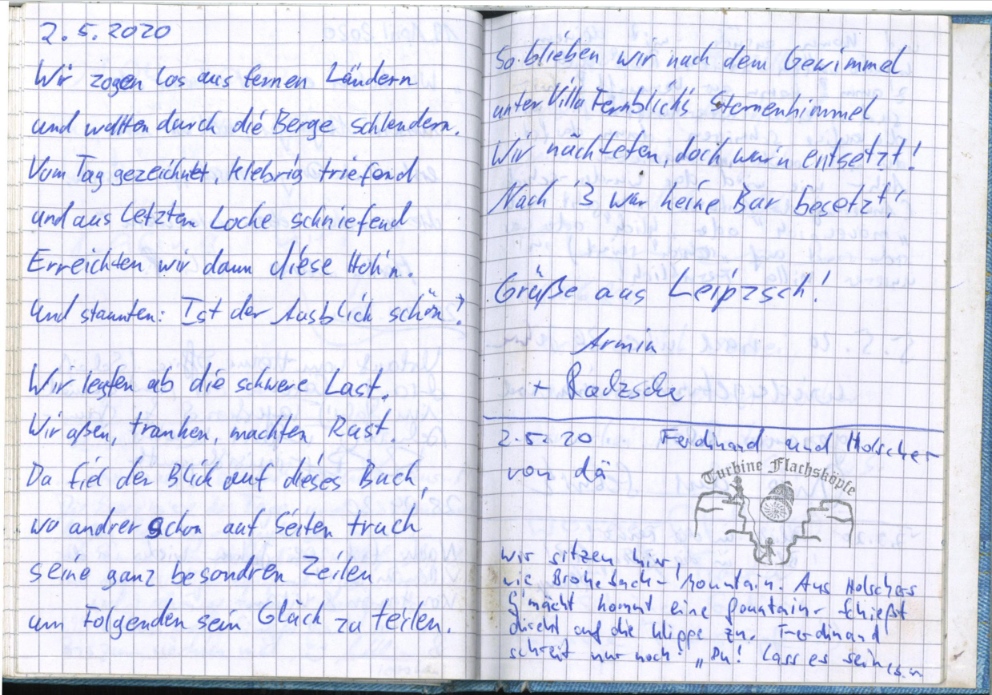 2.5.2020
Wir zogen los aus fernen Ländern
und wollten durch die Berge schlendern.
Vom Tag gezeichnet, klebrig triefend
und aus letztem Loche schniefend
Erreichten wir dann diese Höh'n.
Und staunten: Ist der Ausblick schön!
Wir legten ab die schwere Last.
Wir aßen, tranken, machten Rast.
Da fiel der Blick auf dieses Buch,
wo andrer schon auf Seiten truch
seine ganz besondren Zeilen
um Folgenden sein Glück zu teilen.
So blieben wir nach dem Gewimmel
unter Villa Fernblick's Sternenhimmel
Wir nächteten, doch war'n entsetzt!
Nach '3 war keine Bar besetzt!
Grüße aus Leipzsch!
Armin
+ Radzsche
2.5.20 Ferdinand und Holscher
von dä
Turbine Flachsköpfe
Wir sitzen hir,
wie Brokeback-Mountain. Aus Holschers
G'mächt kommt eine fountain. Schießt
direkt auf die Klippe zu. Ferdinand
schreit nur noch: „Du! Lass es sein